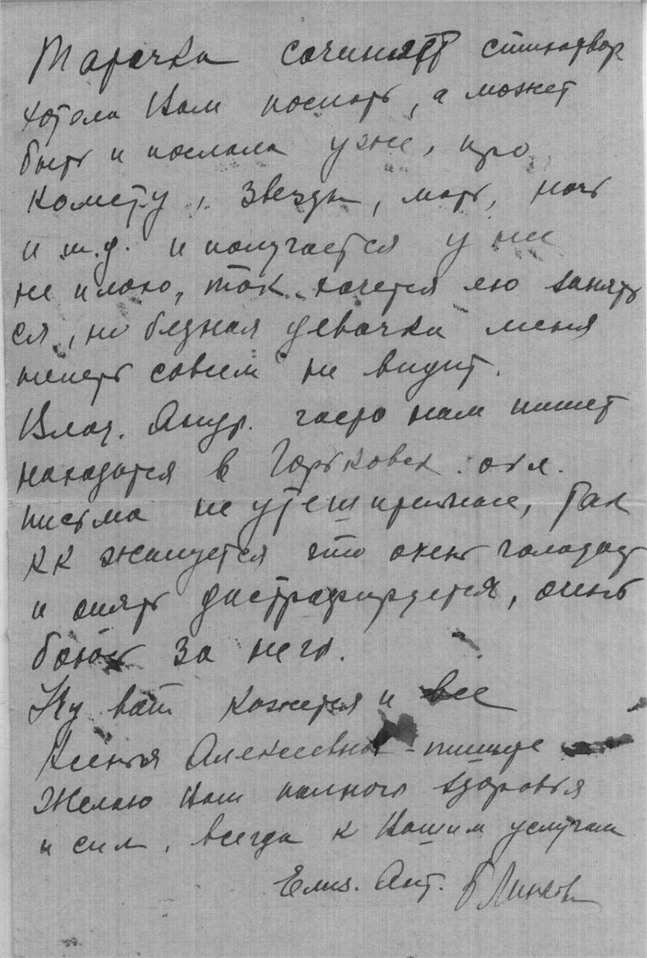 Тарочка сочиняет стихотвор
хотела Вам послать, а может
быть и послала уже, про
комету, звезды, море, ночь
и т.д. и получается у нее
не плохо, так хочется ею занять
ся, но бедная девочка меня
теперь совсем не видит.
Влад. Андр. часто нам пишет
находится в Горьковск. обл.
письма не утешительные, так
как жалуется что очень голодает
и опять дистрофируется, очень
боюсь за него.
Ну вот кажется и все
Ксенья Алексеевна – пишите
Желаю Вам полного здоровья
и сил. всегда к Вашим услугам
Елиз. Ант.